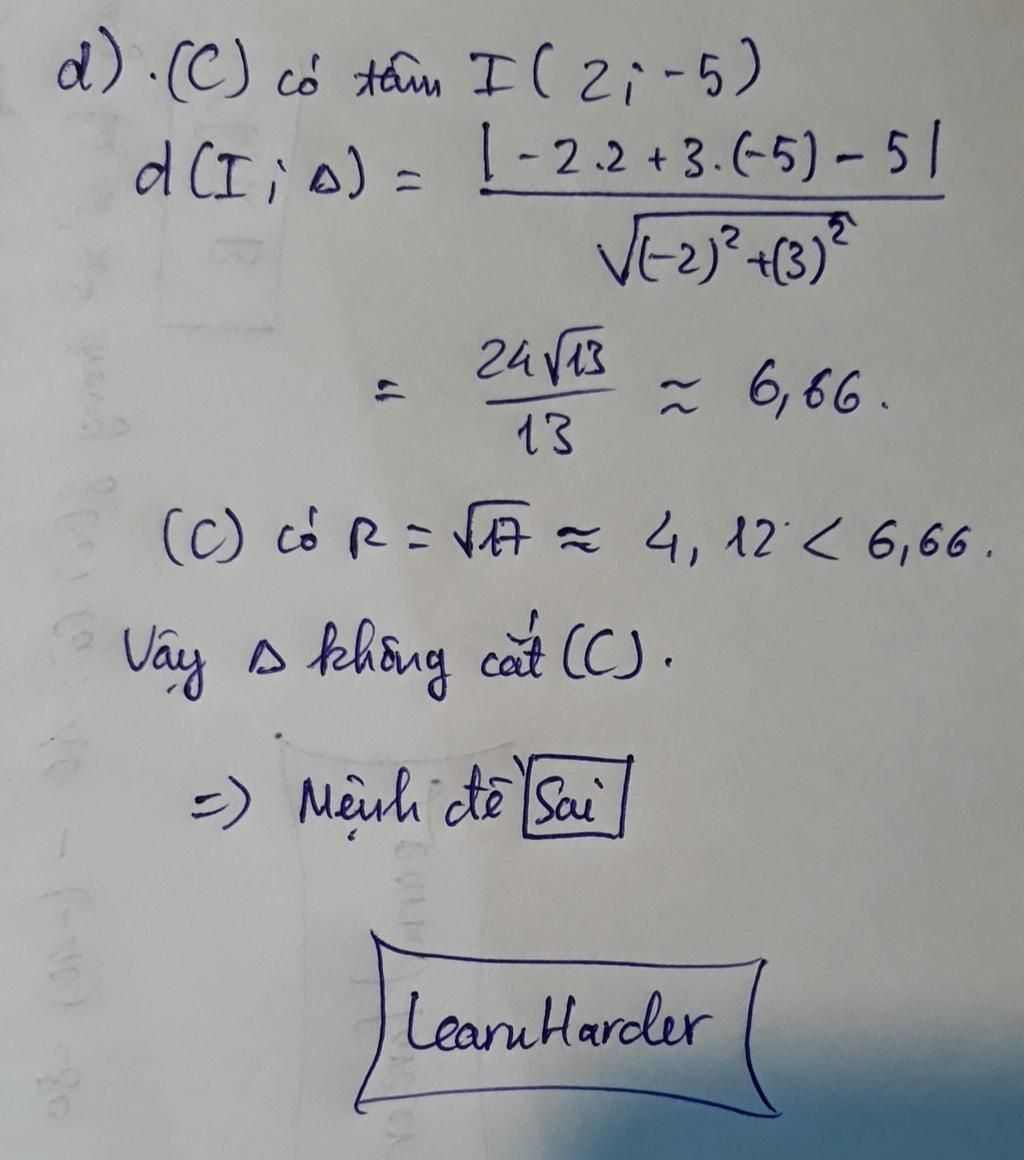 d) . (C) có tâm I ( 2 ; -5 )
d ( I ; Δ ) = | - 2 . 2 + 3 . (-5) - 5 | / √((-2)² + (3)²)
= 24√13 / 13 ≈ 6,66 .
(C) có R = √17 ≈ 4,12 < 6,66 .
Vậy Δ không cắt (C) .
=> Mệnh đề Sai
LearnHarder